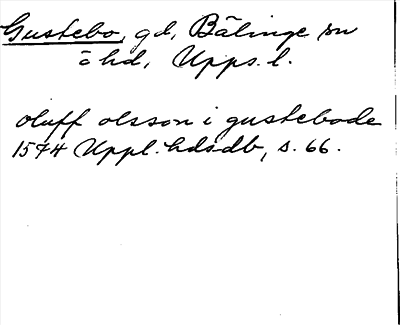 Gustebo, gd, Bälinge sn
o hd, Upps. l.
oluff olsson i gustebode
1544 Uppl. hdsdb, s. 66.